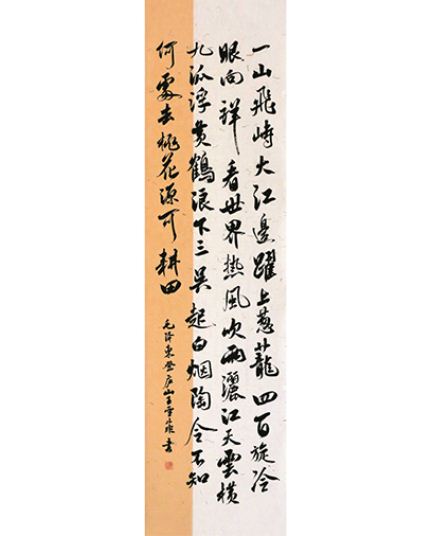 一山飛峙大江邊躍上蔥蘢四百旋冷
眼向洋看世界熱風吹雨灑江天雲橫
九派浮黄鶴浪下三吳起白烟陶令不知
何處去桃花源可耕田
毛泽東登庐山王雪樵書